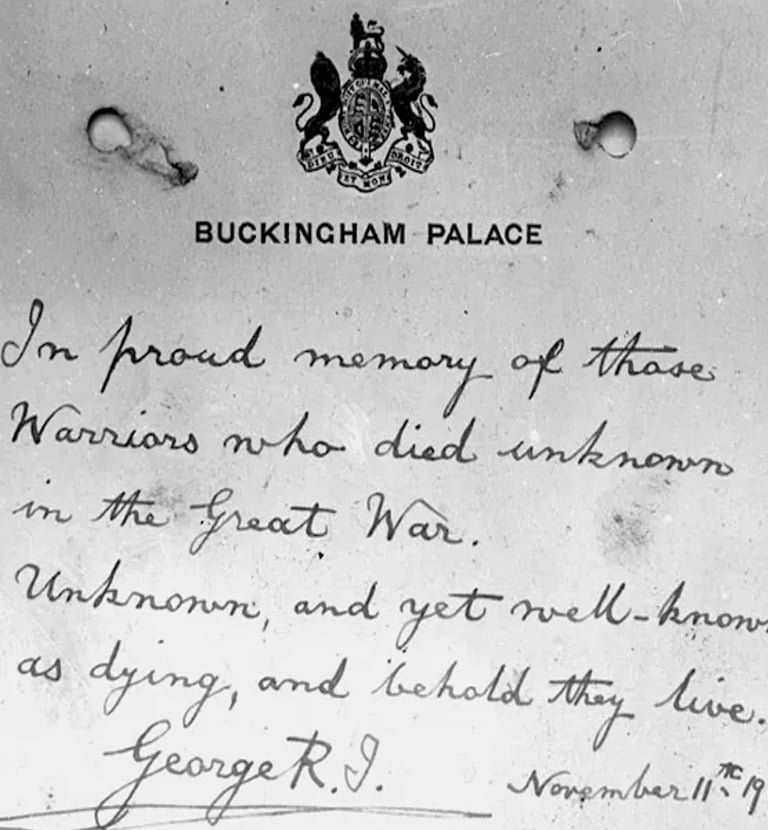 DIEU ET MON DROIT
BUCKINGHAM PALACE
In proud memory of those
Warriors who died unknown
in the Great War.
Unknown, and yet well-known
as dying, and behold they live.
George R.I.
November 11th 19